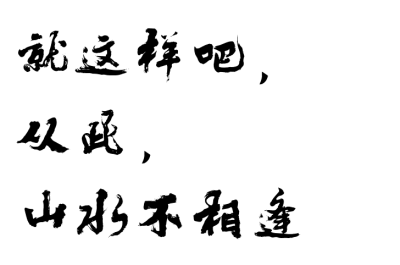 就这样吧，
从此，
山水不相逢